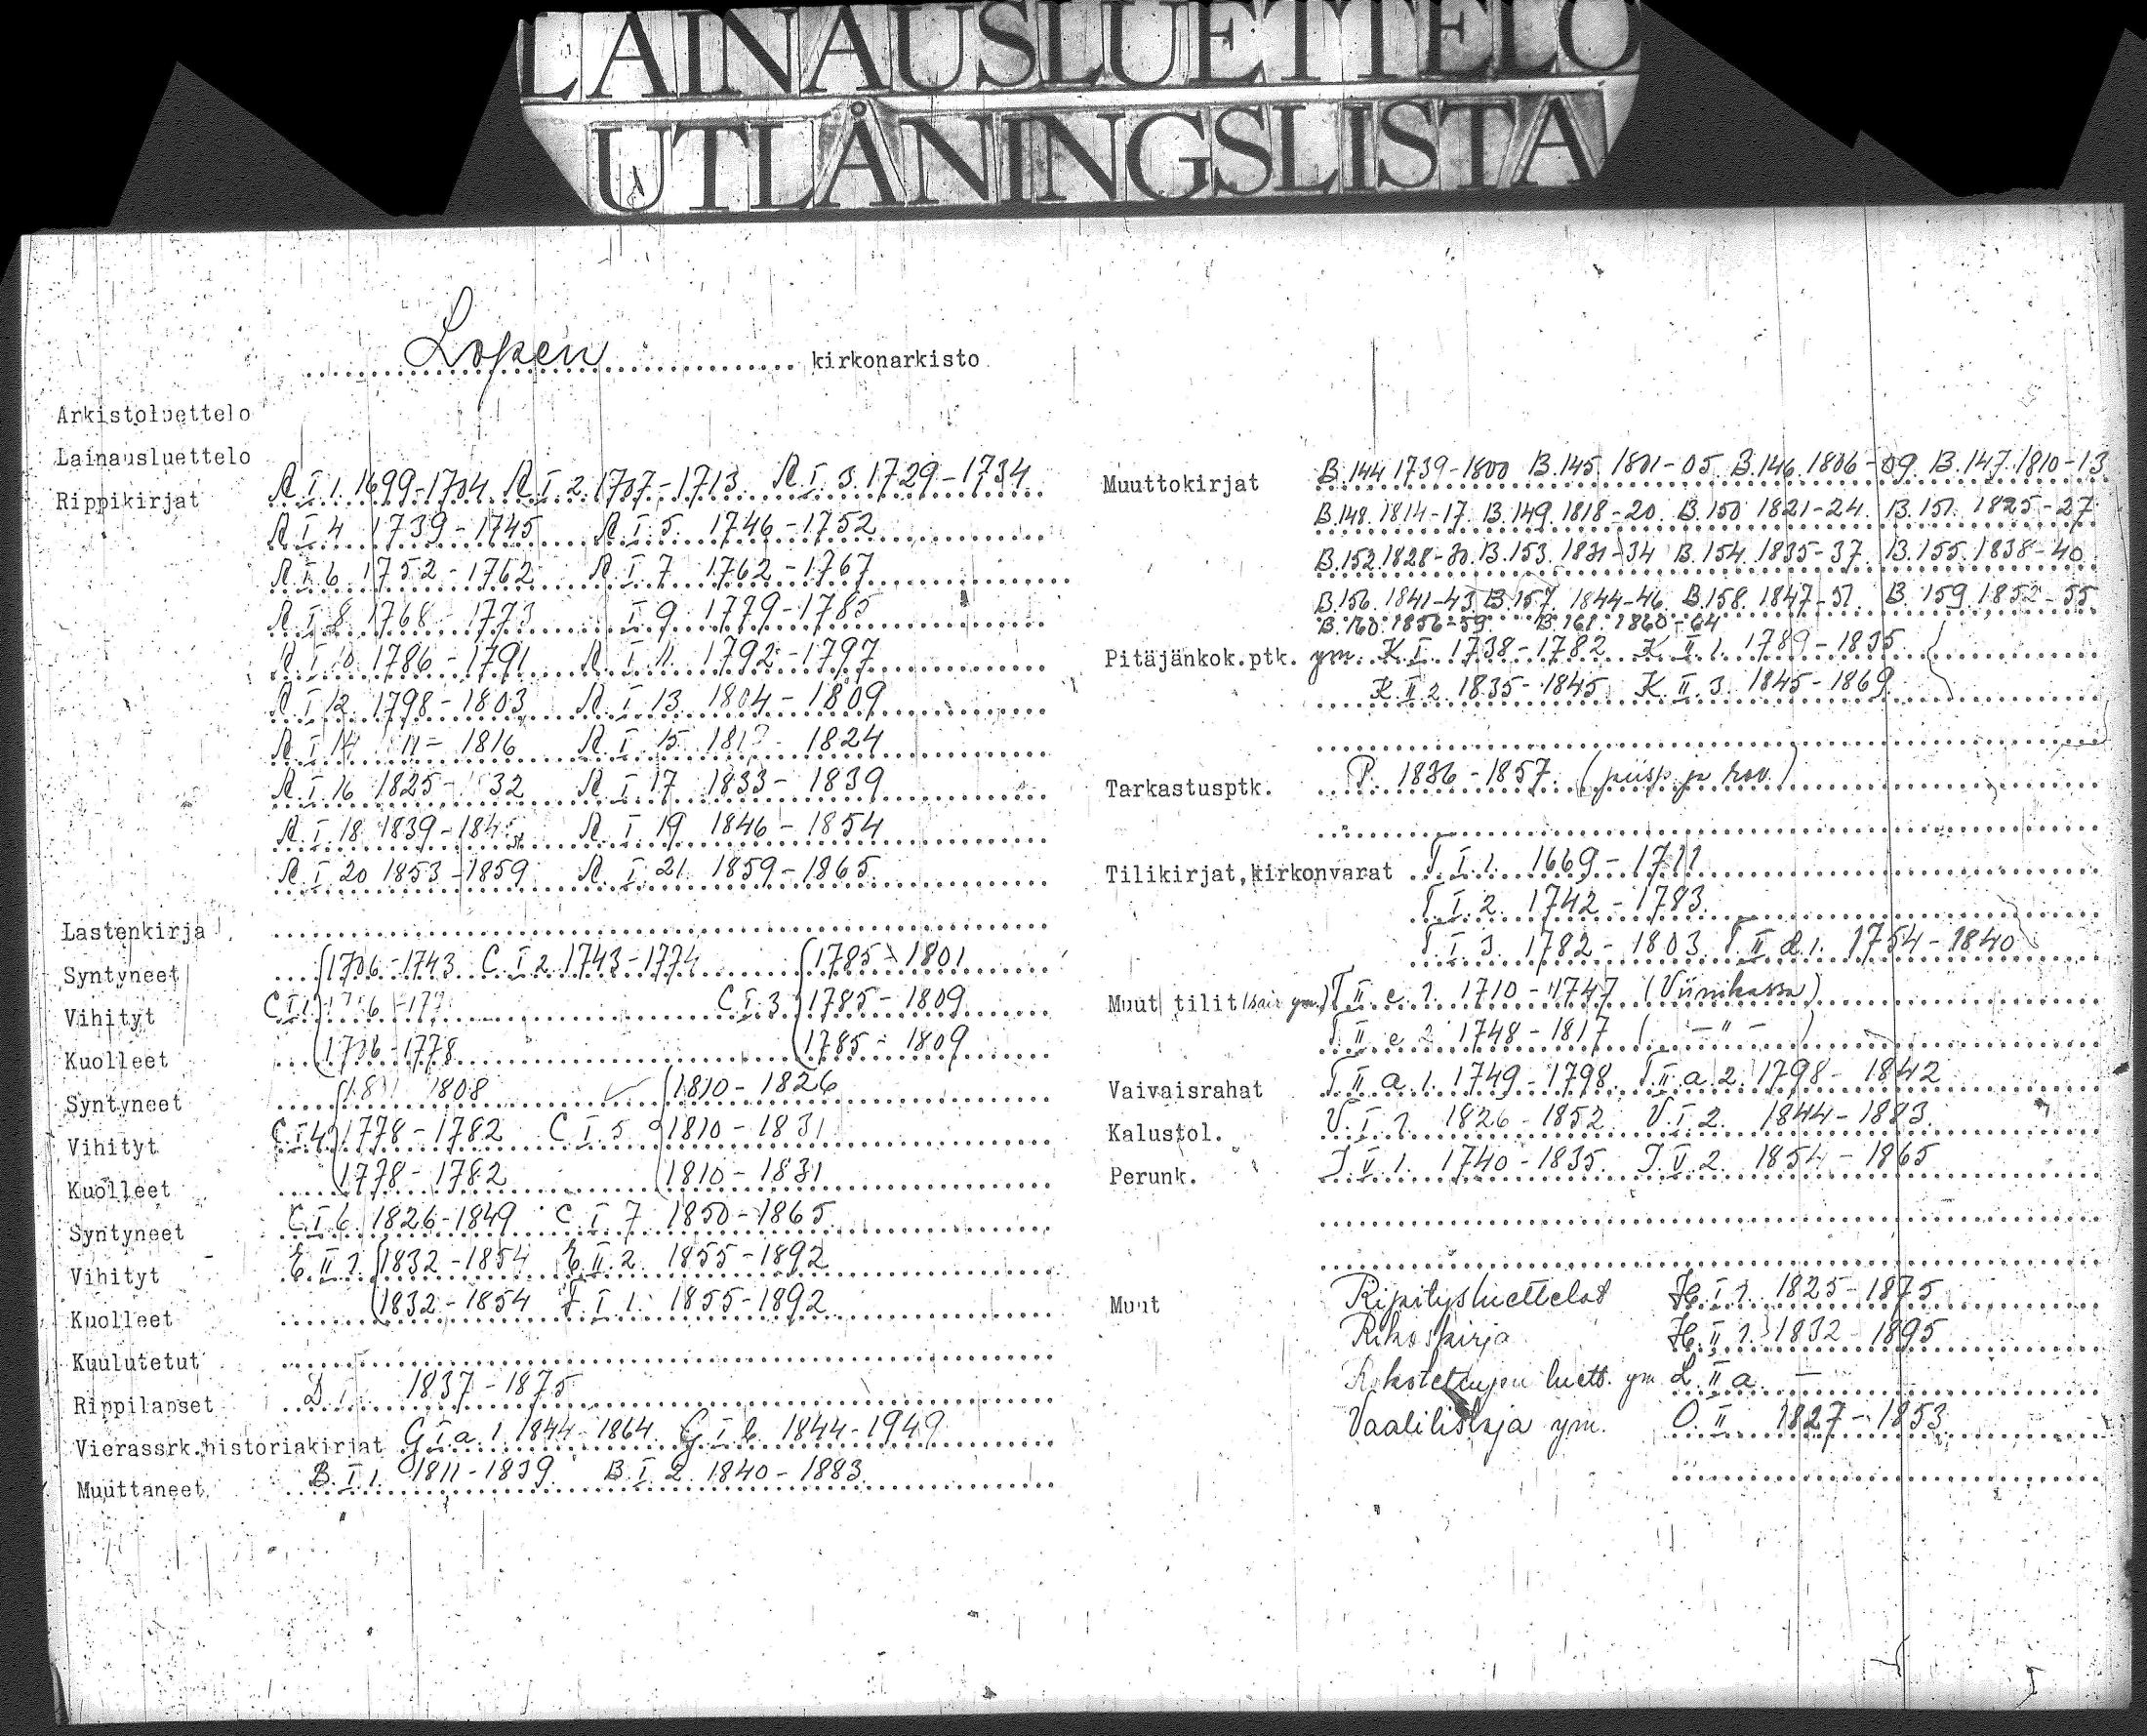 LAINAUSLUETTELO
UTLÅNINGSLISTA
Lopen kirkonarkisto
Arkistoluettelo
Lainausluettelo
Rippikirjat R I 1. 1699-1704 R I 2. 1707-1713 R I 3. 1729-1734
R I 4 1739-1745 R I 5. 1746-1752
R I 6 1752-1762 R I 7 1762-1767
R I 8 1768-1773 I 9 1779-1785
R I 10 1786-1791 R I 11. 1792-1797
R I 12. 1798-1803 R I 13. 1804-1809
R I 14 1816 R I 15 1824
R I 16 1825- 32 R I 17 1833-1839
R I 18 1839- R I 19 1846-1854
R I 20 1853-1859 R I 21. 1859-1865
Lastenkirja
Syntyneet 1706-1743 C I 2 1743-1774 1785-1801
Vihityt C I 1 C I 3 1785-1809
Kuolleet 1706-1778 1785-1809
Syntyneet 1808 1810-1826
Vihityt C I 4 1778-1782 C I 5 1810-1831
Kuolleet 1778-1782 1810-1831
Syntyneet C I 6. 1826-1849 C I 7 1850-1865
Vihityt E II 1. 1832-1854 E II 2. 1855-1892
Kuolleet 1832-1854 F I 1. 1855-1892
Kuulutetut
Rippilapset D 1837-1875
Vierassrk.historiakirjat G I a 1 1844-1864 G I b 1844-1949
Muuttaneet B. I 1. 1811-1839. B. I 2. 1840-1883.
Muuttokirjat B.144 1739-1800 B.145. 1801-05. B.146. 1806-09. B.147. 1810-13
B.148. 1814-17. B.149. 1818-20. B.150 1821-24. B.151. 1825-27
B.152. 1828-30. B.153. 1831-34 B.154. 1835-37. B.155. 1838-40.
B.156. 1841-43. B.157. 1844-46. B.158. 1847-51. B.159. 1852-55
B.160. 1856-59 B.161. 1860-64
Pitäjänkok.ptk. ym. K I. 1738-1782 K II 1. 1789-1835
K II 2. 1835-1845 K II 3. 1845-1869
Tarkastusptk. P. 1836-1857. (piisp. ja rov.)
Tilikirjat,kirkonvarat T I 1. 1669-1711
T I 2. 1742-1783.
T I 3. 1782-1803 T II d 1. 1754-1840
Muut tilit T II e 1. 1710-1747 (Viinikassa)
T II e 2 1748-1817 ( -"- )
Vaivaisrahat T II a. 1. 1749-1798. T II a. 2. 1798-1842
Kalustol. V. I 1. 1826-1852 V. I 2. 1844-1883.
Perunk. J. V 1. 1740-1835. J. V 2. 1854-1865
Muut Ripitysluettelot H I 1. 1825-1875
Rikoskirja H II 1. 1832-1895
luett. ym L II a. -
Vaalilistoja ym. O. II. 1827-1853